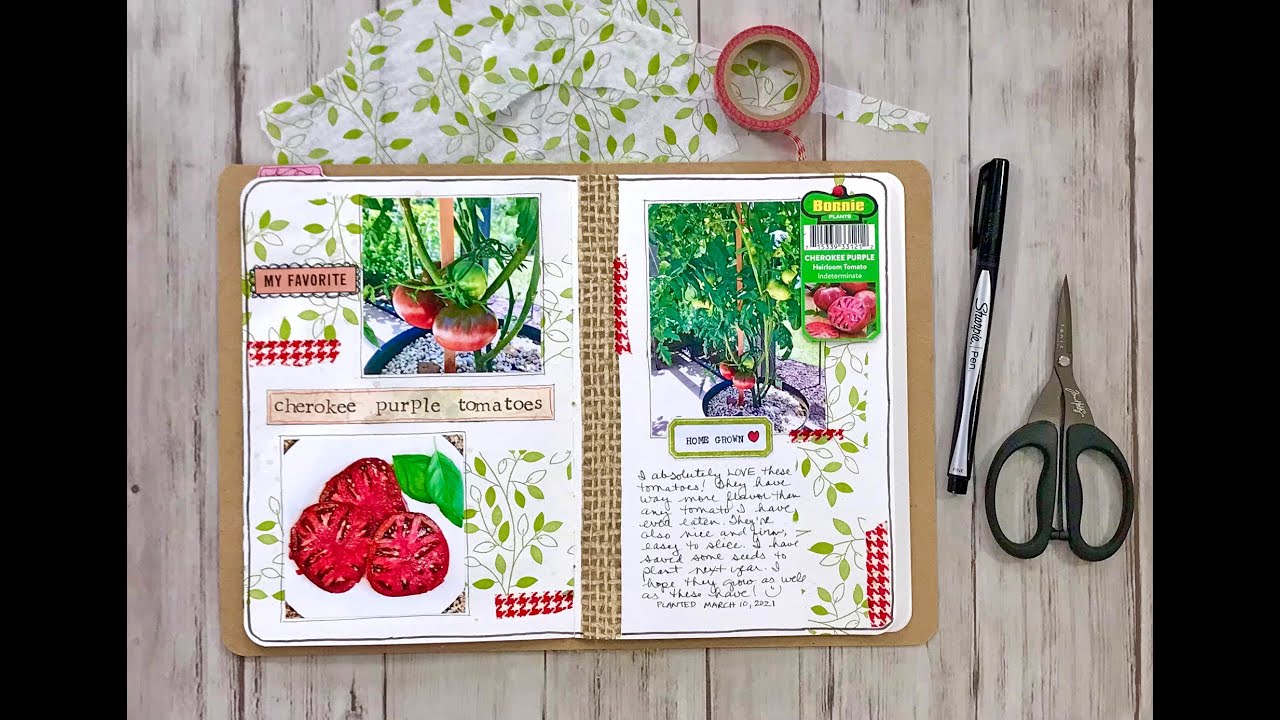 MY FAVORITE
cherokee purple tomatoes
Bonnie
PLANTS
15339 33121 2
CHEROKEE PURPLE
Heirloom Tomato
Indeterminate
HOME GROWN
I absolutely LOVE these
tomatoes! They have
way more flavor than
any tomato I have
ever eaten. They're
also nice and firm,
easy to slice. I have
saved some seeds to
plant next year. I
hope they grow as well
as these have!
PLANTED MARCH 10, 2021
Sharpie. Pen
FINE
tonic